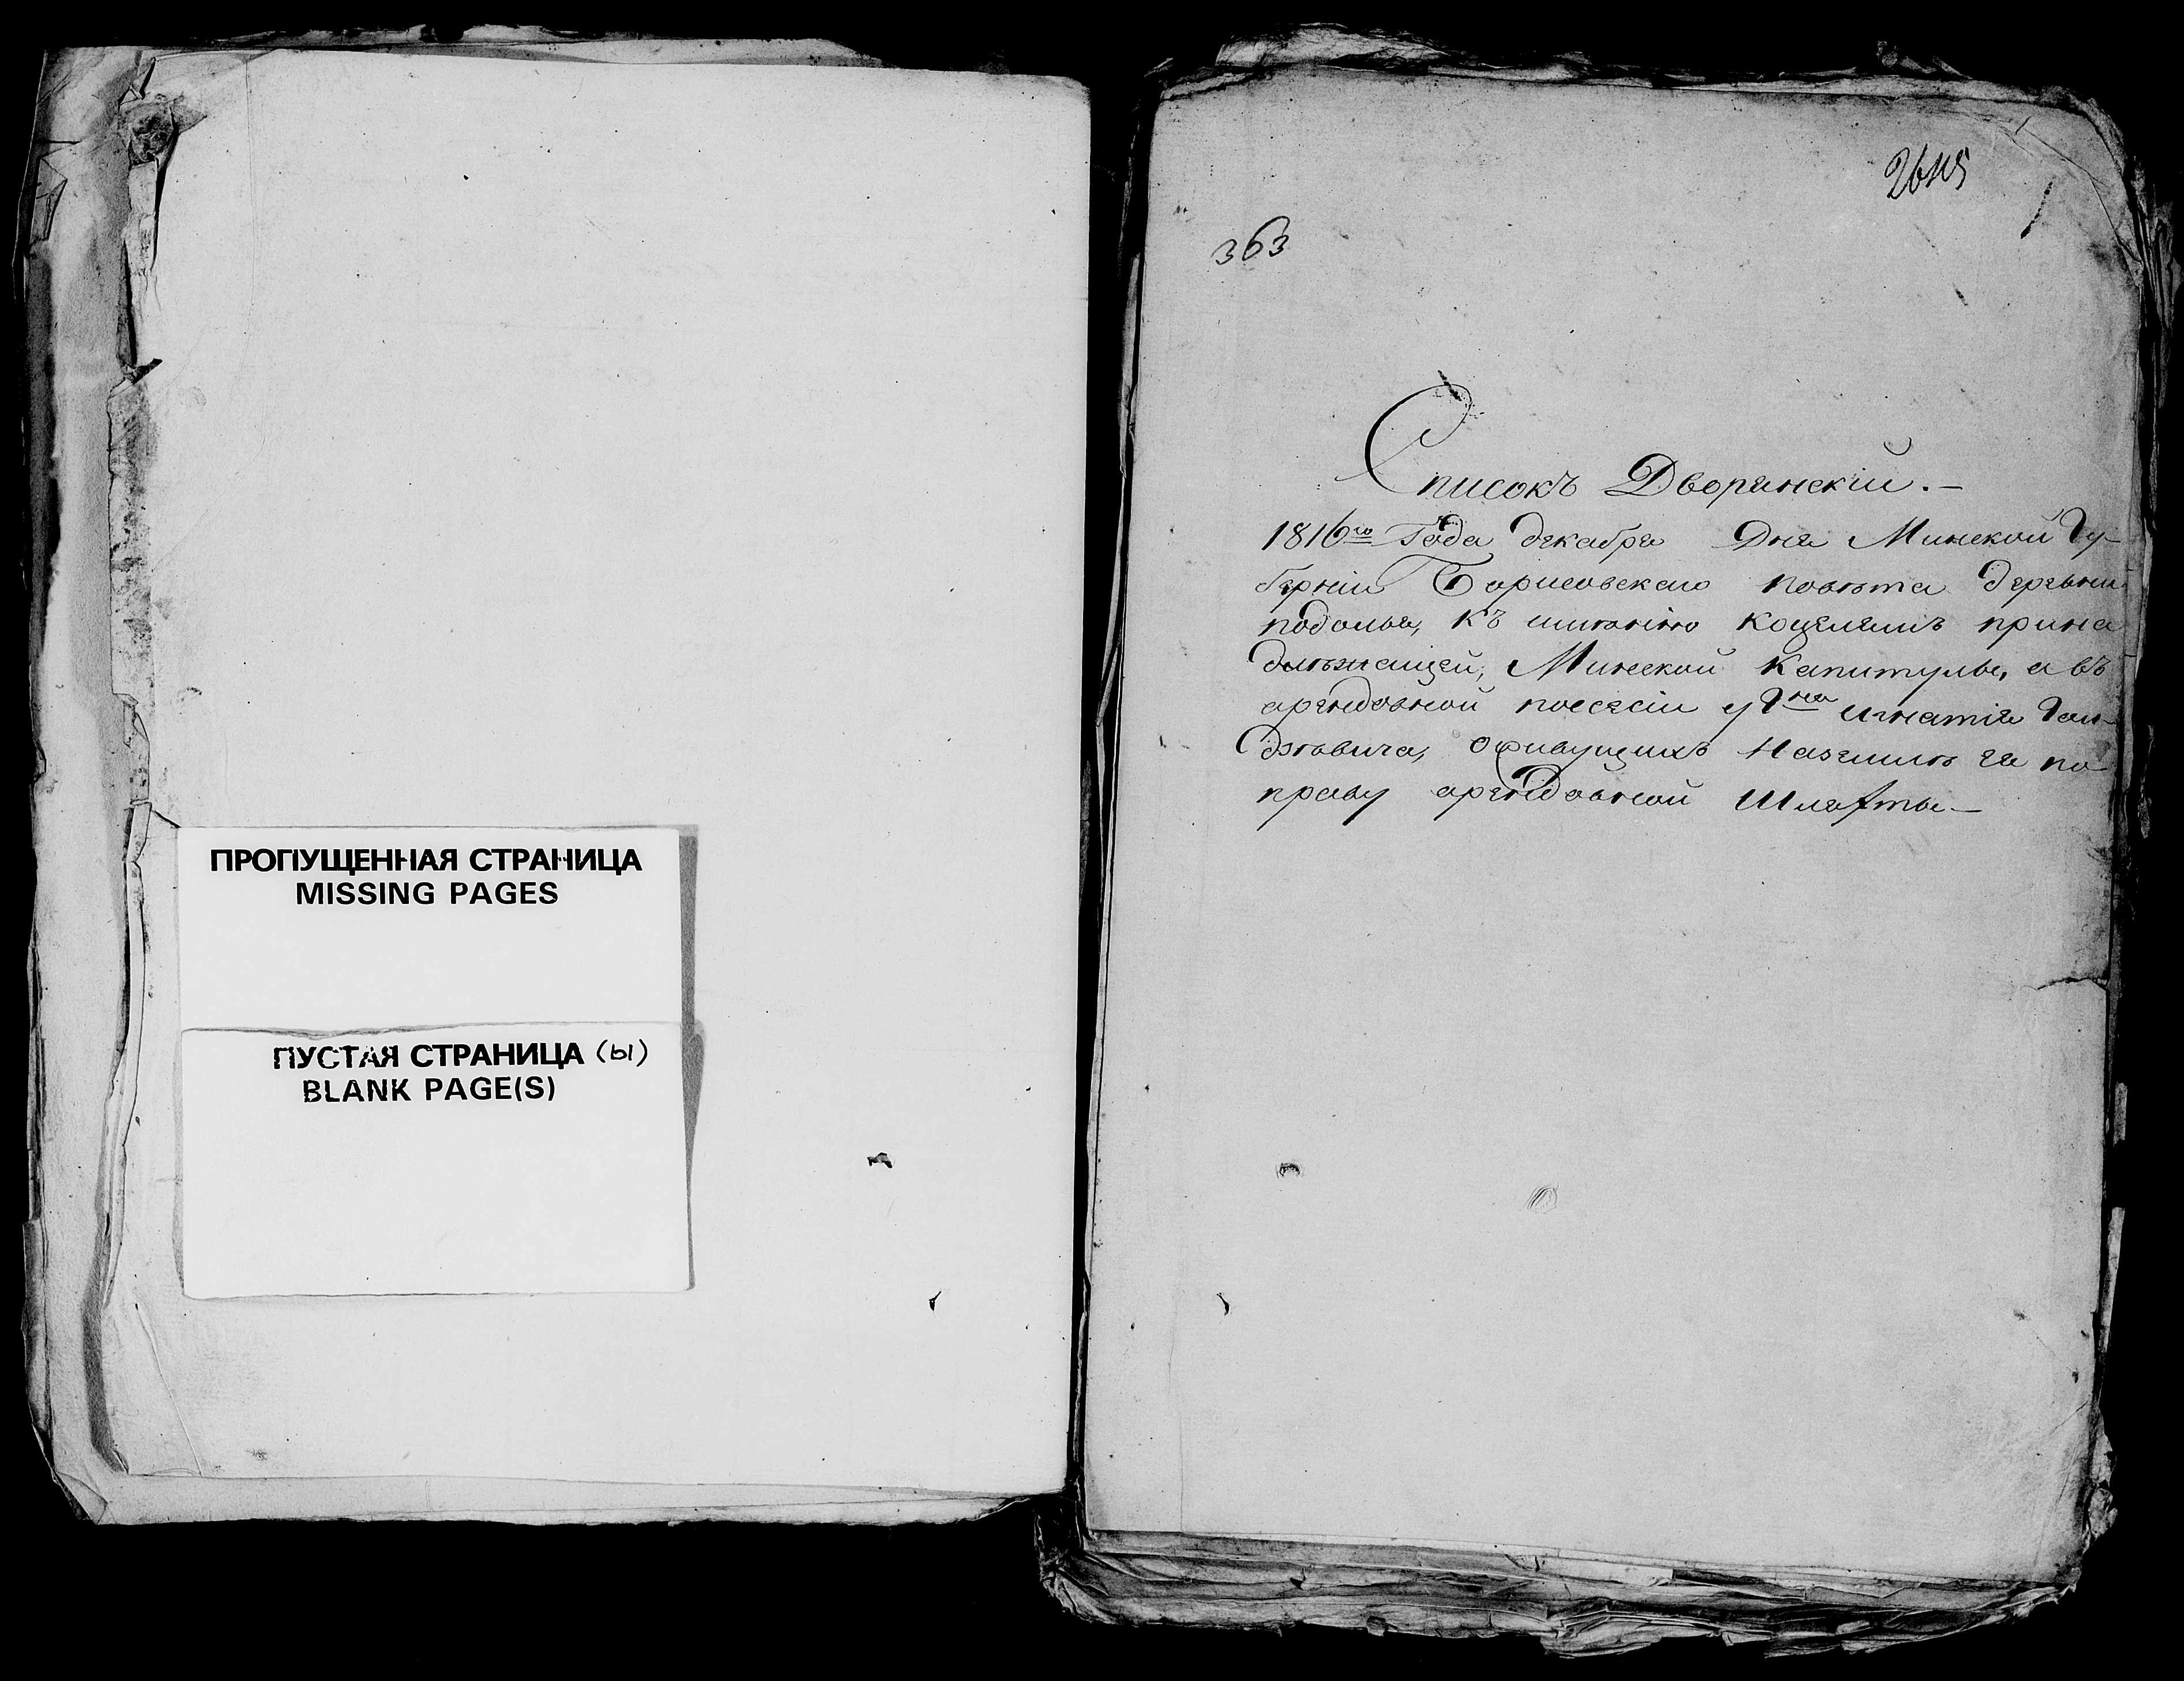 ПРОПУЩЕННАЯ СТРАНИЦА
MISSING PAGES
ПУСТАЯ СТРАНИЦА (ы)
BLANK PAGE(S)
363
Списокъ Дворянскій.—
1816го Года декабря Дня Минской Гу-
берніи Борисовскаго повѣта деревни
подолья, къ имѣнію прина
длѣжащей, Минской Капитулы, а въ
арендовной посесіи у Гна игнатія
оживущихъ Наземлѣ ея по
праву арендовной Шляхты—